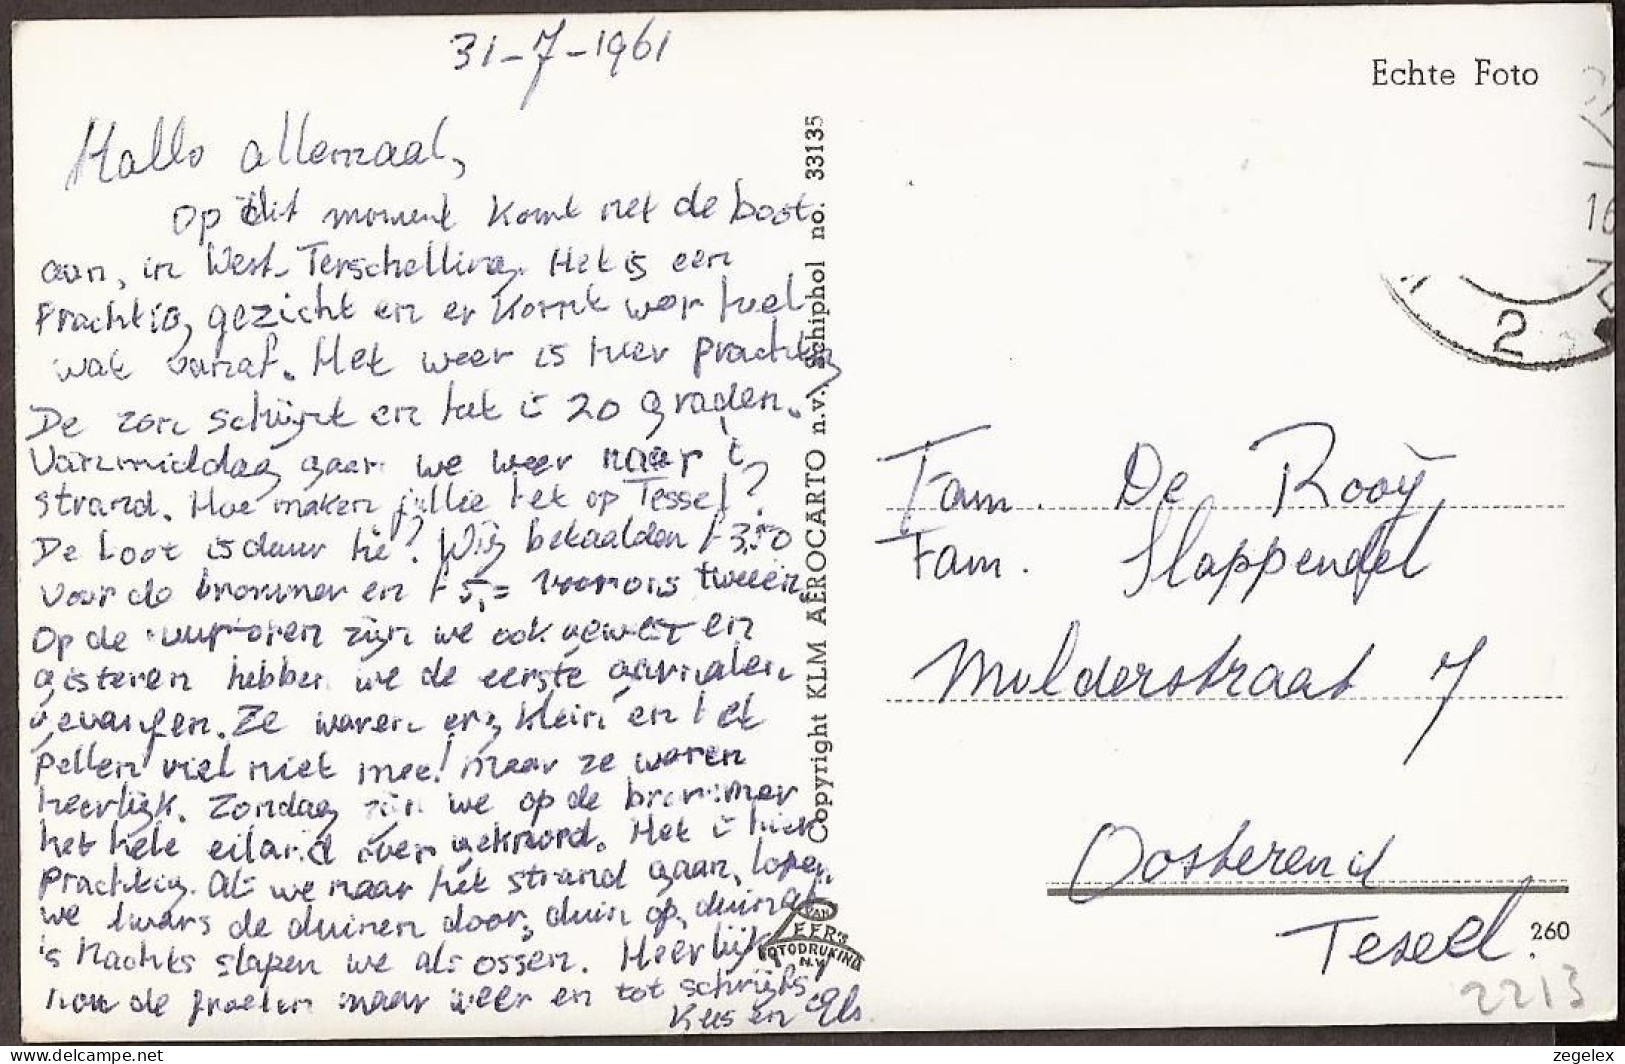 31-7-1961
Hallo allemaal,
Op dit moment komt net de boot
aan, in West-Terschelling. Het is een
Prachtig gezicht en er komt wer heel
wat vanaf. Het weer is hier prachtig
De zon schijnt en het is 20 graden.
Vanmiddag gaan we weer naar 't
strand. Hoe maken jullie het op Tessel?
De boot is duur hé? Wij betaalden f 3.50
voor de brommer en f 5,= voor ons tweeën.
Op de vuurtoren zijn we ook geweest en
gisteren hebben we de eerste garnalen
gevangen. Ze waren erg klein en het
pellen viel niet mee! maar ze waren
heerlijk. Zondag zijn we op de brommer
het hele eiland over geknord. Het is hier
prachtig. Als we naar het strand gaan, lopen
we dwars de duinen door, duin op, duin af
's Nachts slapen we als ossen. Heerlijk
nou de groeten maar weer en tot schrijfs
Kees en Els.
Copyright KLM AEROCARTO n.v. Schiphol no. 33135
VAN
LEER'S
FOTODRUKIND
N.V.
Echte Foto
16
2
Fam. De Rooij
Fam. Slappendel
Mulderstraat 7
Oosterend
Texel.
260
2213
zegelex
delcampe.net